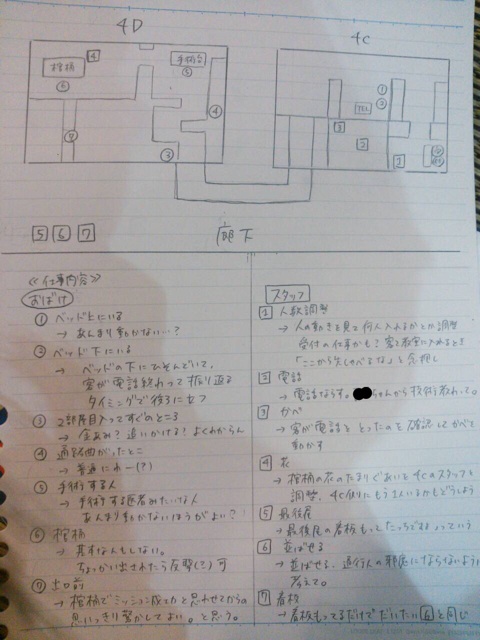 4D
4C
棺桶
4
⑥
手術台
⑤
④
⑦
③
TEL
①
②
3
2
1
5 6 7
廊下
≪仕事内容≫
おばけ
① ベッド上にいる
→ あんまり動かない…?
② ベッド下にいる
→ ベッドの下にひそんどいて、
客が電話終わって振り返る
タイミングで後ろに立つ
③ 2部屋目入ってすぐのところ
→ 追いかける? よくわからん
④ 通路曲がったとこ
→ 普通にわー(?)
⑤ 手術する人
→ 手術する医者みたいな人
あんまり動かないほうがよい?
⑥ 棺桶
→ 基本なんもしない。
ちょっかい出されたら反撃(?)可
⑦ 出口前
→ 棺桶でミッション成てかと思わせてからの
思いっきり驚かしてよい。と思う。
スタッフ
1 人数調整
→ 人の動きを見て何人入れるかとか調整
受付の仕事かも? 客を教室に入れるとき
「ここから先しゃべるな」と念押し
2 電話
→ 電話ならす。 ちゃんから技術教わって。
3 かべ
→ 客が電話をとったのを確認してかべを
動かす
4 花
→ 棺桶の花のたまりぐあいを4Cのスタッフと
調整、4C側にもう1人いるかもどうしよう
5 最後尾
→ 最後尾の看板もってたっちょるっていう
6 並ばせる
→ 並ばせる、通行人の邪魔にならないように
考えて。
7 看板
→ 看板もってるだけでだいたい6と同じ